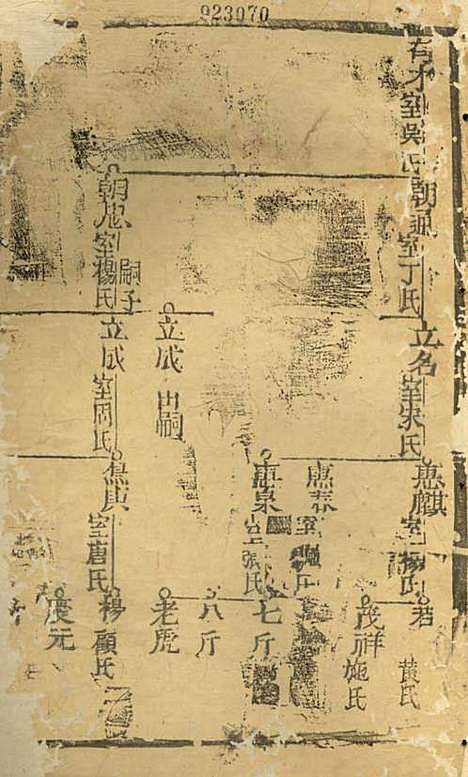 923070
有才 室吳氏
朝珮 室丁氏
朝旭 室楊氏
嗣子
立名 室宋氏
立成 出嗣
立成 室周氏
惠麒 室楊氏
惠春 室
惠泉 室張氏
惠庚 室唐氏
若 黃氏
茂祥 施氏
七斤
八斤
老虎
楊 顧氏
慶元